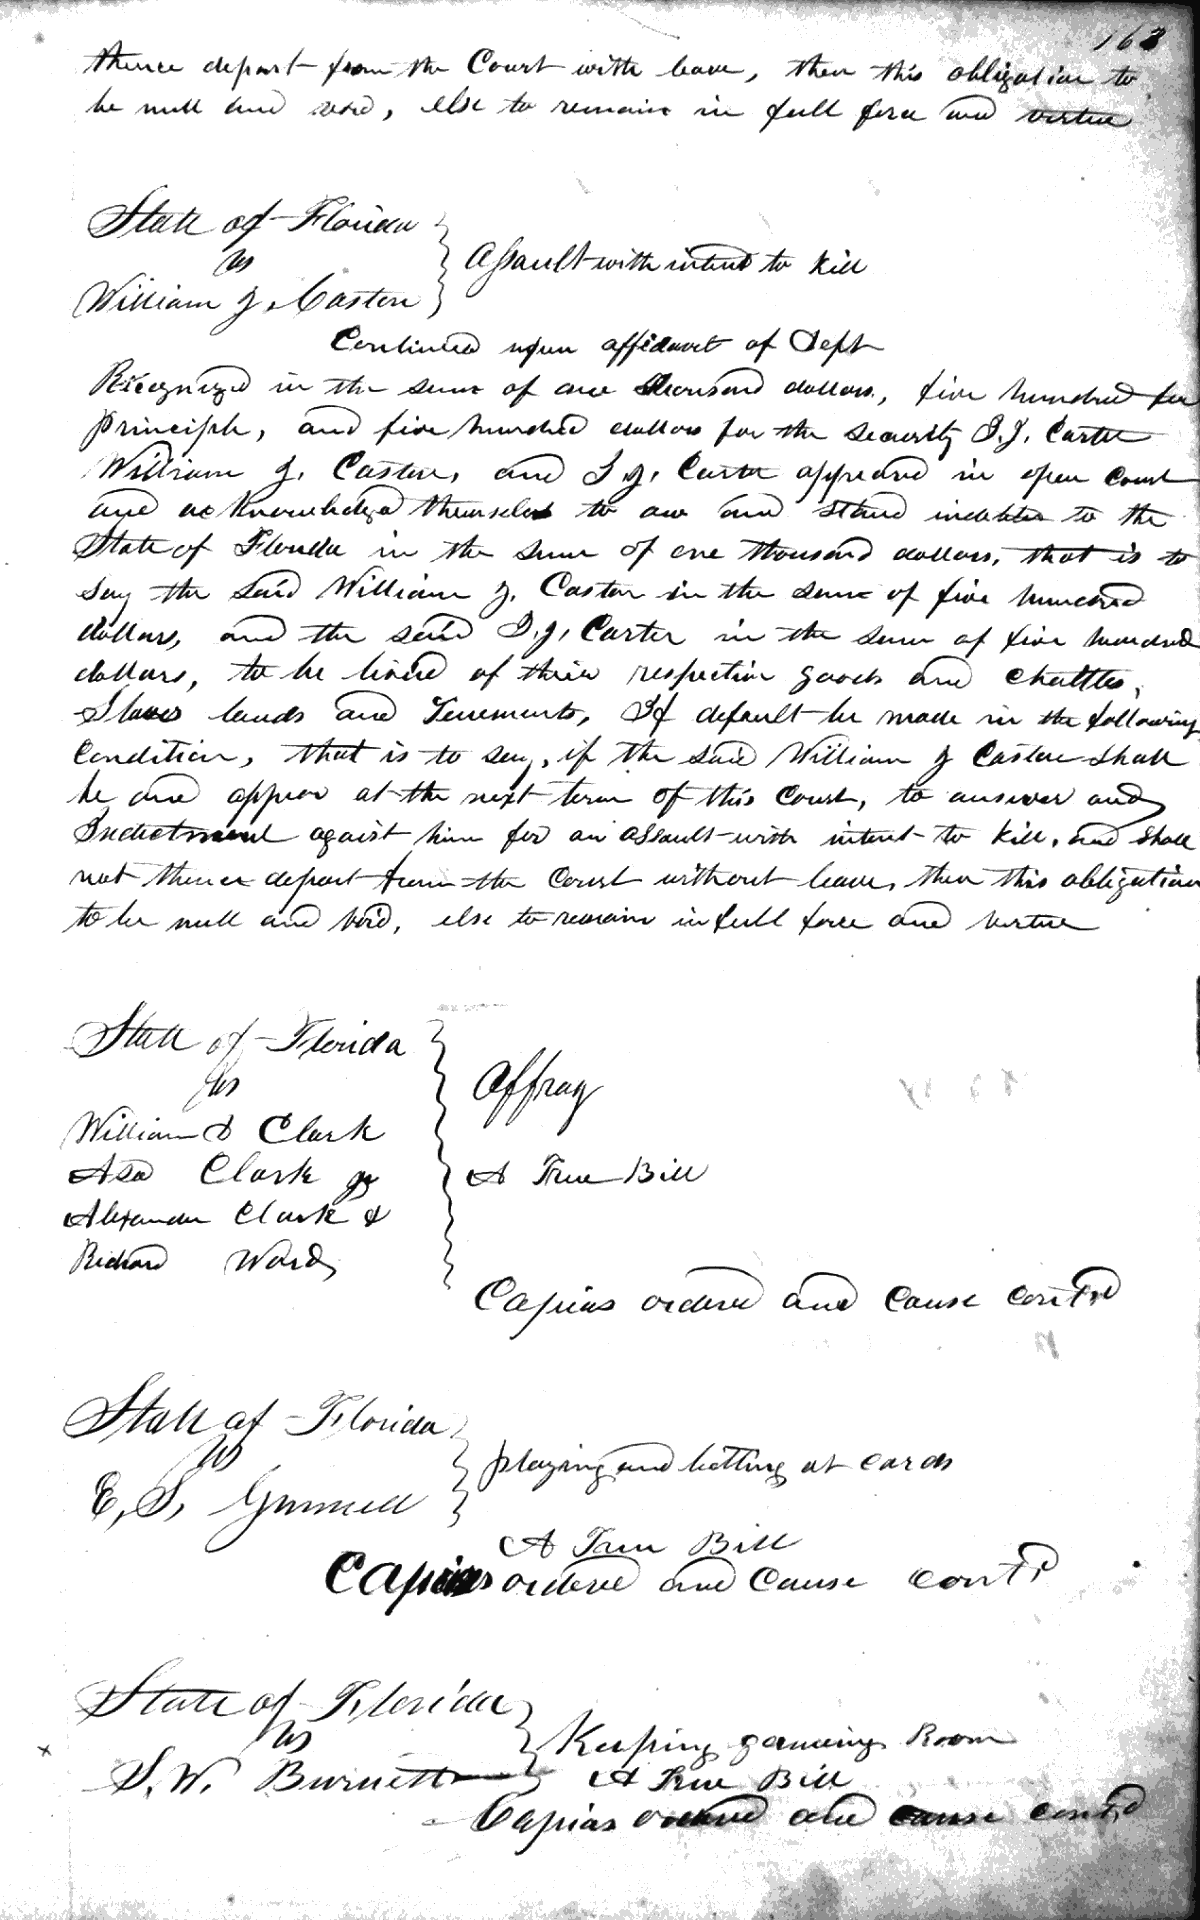 163
thence depart from the Court with leave, then this obligation to
be null and void, else to remain in full force and virtue
State of Florida
vs
William J. Caston
Assault with intent to kill
Continued upon affidavit of Deft
Recognized in the sum of one thousand dollars, five hundred for
principle, and five hundred dollars for the security I. J. Carter
William J. Caston, and I. J. Carter appeared in open court
and acknowledged themselves to owe and stand indebted to the
State of Florida in the sum of one thousand dollars, that is to
say the said William J. Caston in the sum of five hundred
dollars, and the said I. J. Carter in the sum of five hundred
dollars, to be livied of their respective goods and chattles,
Slaves lands and Tenements, If default be made in the following
Condition, that is to say, if the said William J Caston shall
be and appear at the next term of this Court, to answer and
Indictment agaist him for an assault with intent to kill, and shall
not thence depart from the Court without leave, then this obligation
to be null and void, else to remain in full force and virtue
State of Florida
vs
William D Clark
Asa Clark Jr
Alexander Clark &
Richard Ward
Affray
A True Bill
Capias ordered and cause contd
State of Florida
vs
E. S. Gunnell
playing and betting at cards
A True Bill
Capias ordered and Cause contd
State of Florida
vs
S. W. Burnett
Keeping gameing Room
A True Bill
Capias ordered and cause contd